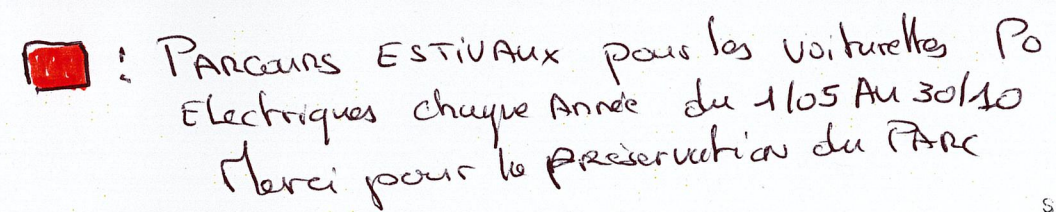 : PARCOURS ESTIVAUX pour les voiturettes Po
Electriques chaque Année du 1/05 AU 30/10
Merci pour la préservation du PARC
s